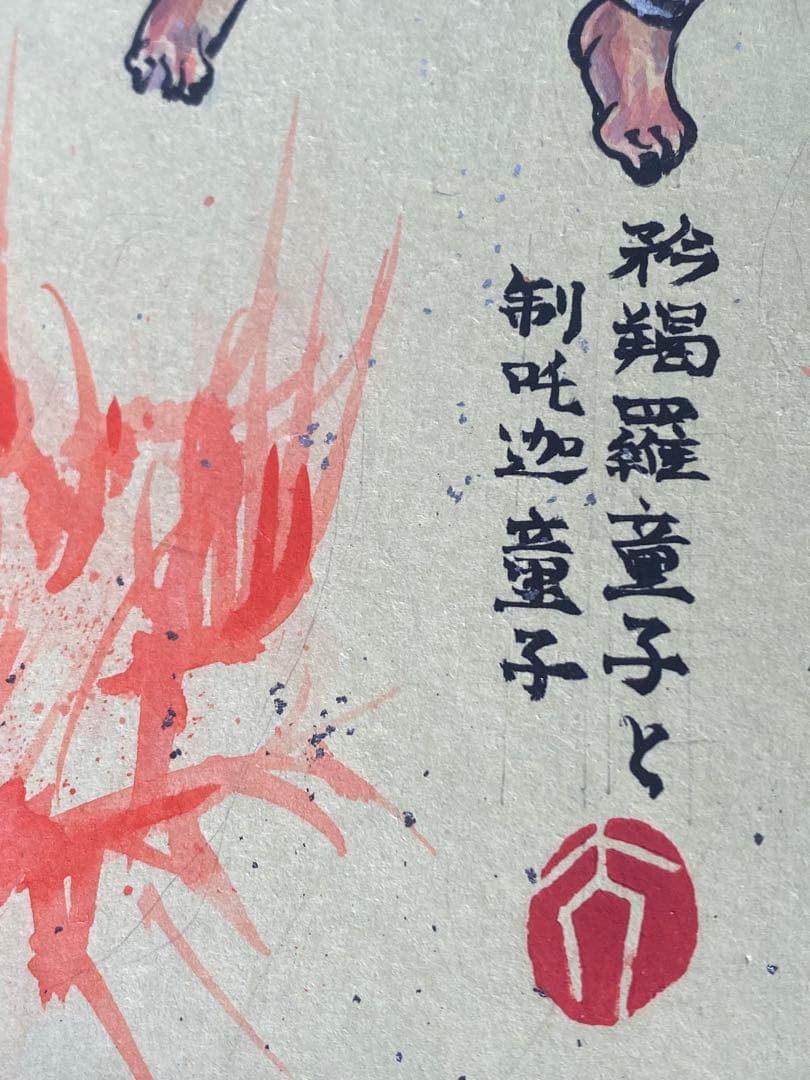 矜羯羅童子と
制吒迦童子